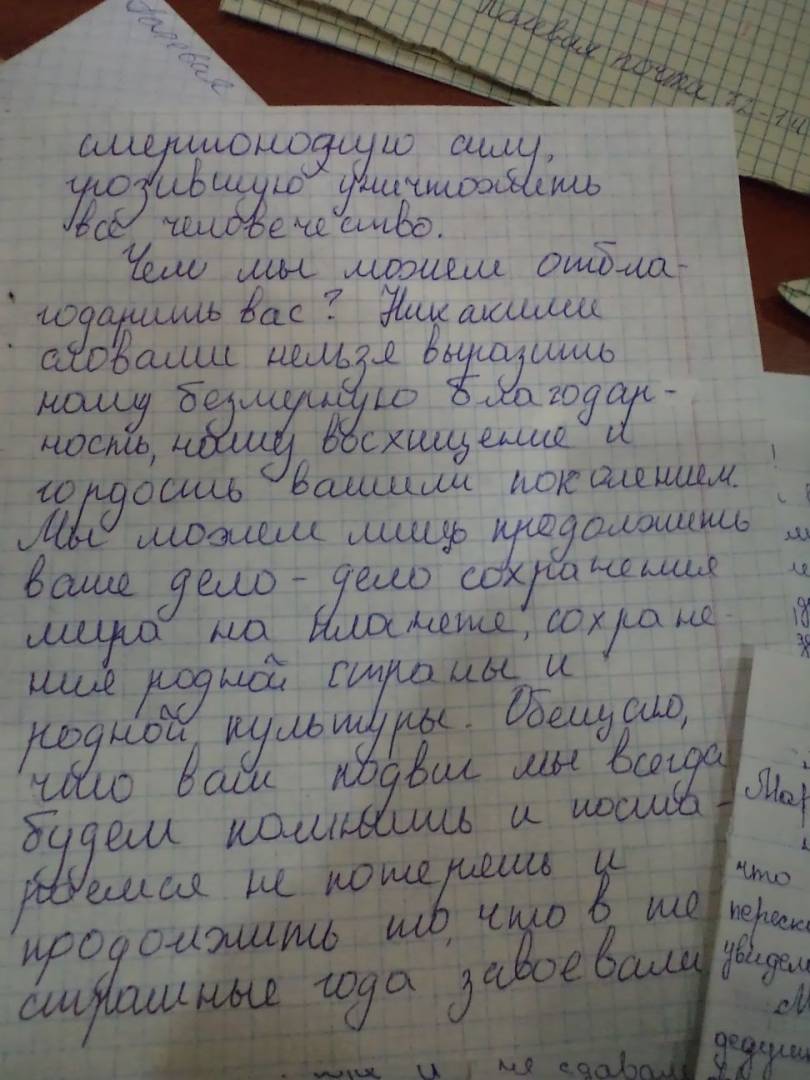 Полевая
Полевая почта 72-
смертоносную силу,
грозившую уничтожить
всё человечество.
Чем мы можем отбла-
годарить вас? Никакими
словами нельзя выразить
нашу безмерную благодар-
ность, нашу восхищение и
гордость вашим поколением.
Мы можем лишь продолжить
ваше дело - дело сохранения
мира на планете, сохране-
ния родной страны и
родной культуры. Обещаю,
что ваш подвиг мы всегда
будем помнить и поста-
раемся не потерять и
продолжить то, что в те
страшные года завоевали
Мар
что
увидел
М
и не сдавал